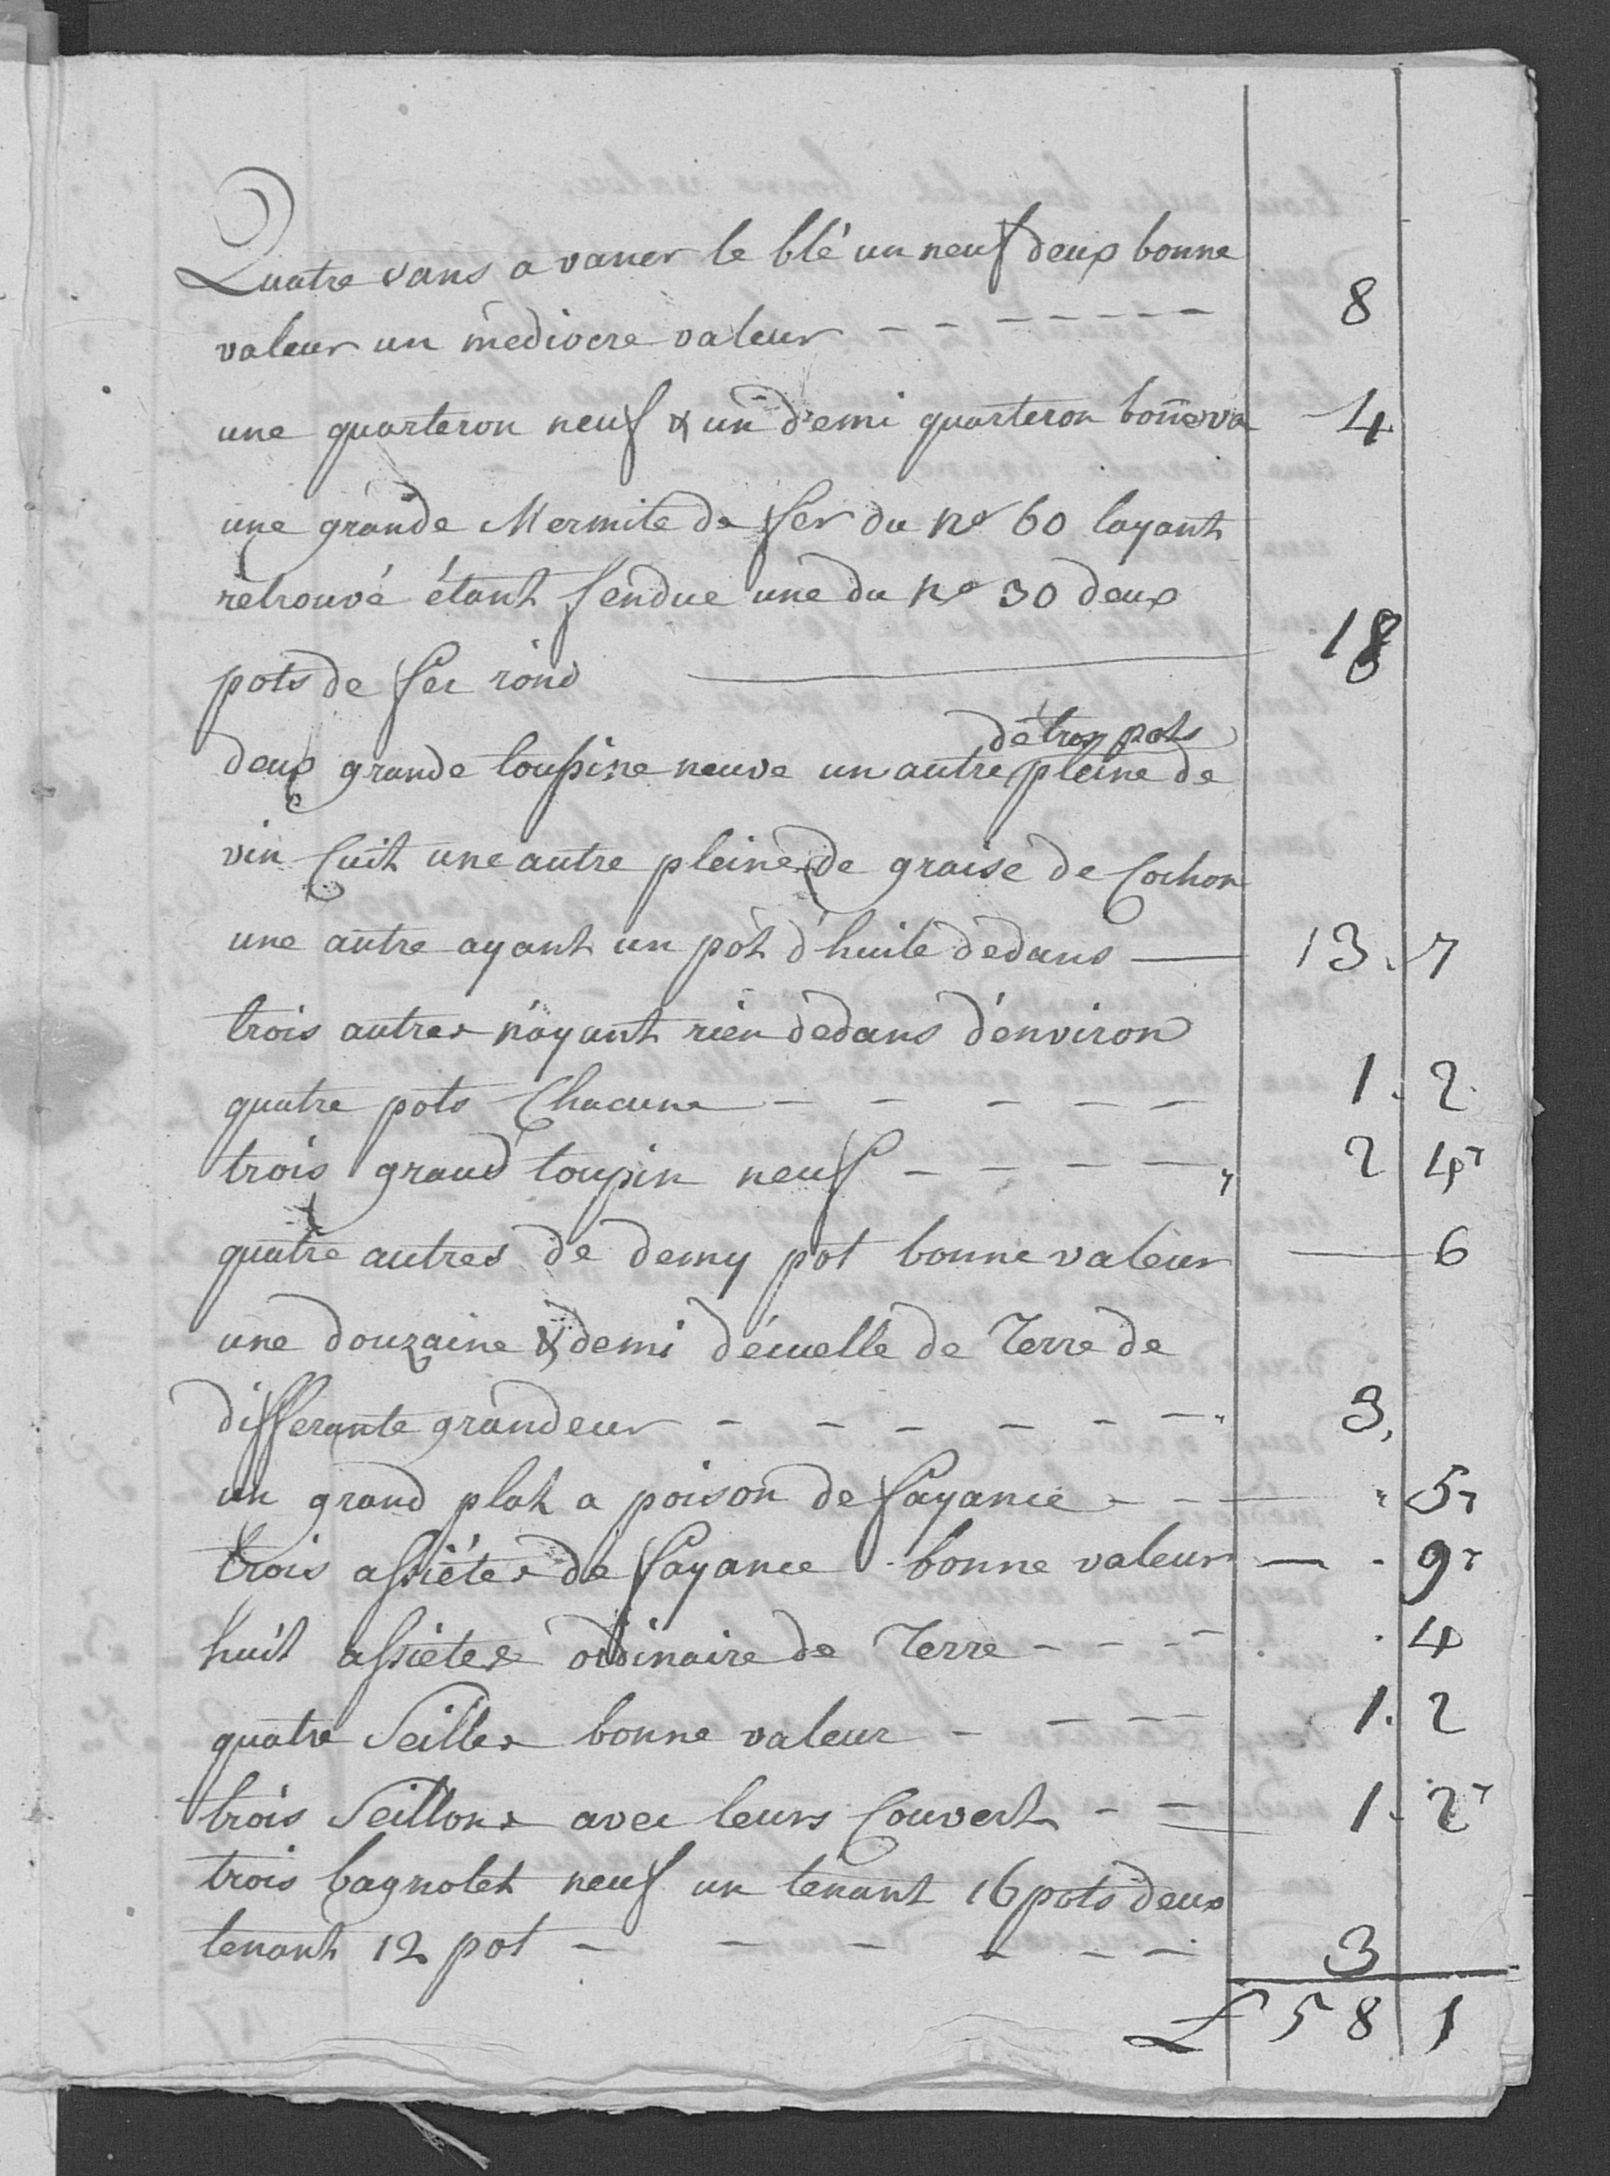 Quatre vans a vaner le blé un neuf deux bonne
valeur un mediocre valeur - - - - - - - 8
une quarteron neuf & un demi quarteron bone va 4
une grande Mermite de fer du no 60 layant
retrouvé étant fendue une du no 30 deux
pots de fer rond 18
de trois pots
deux grande toupine neuve un autre pleine de
vin Cuit une autre pleine de graise de Cochon
une autre ayant un pot d'huile dedans — 13. 7
trois autres n'ayant rien dedans d'environ
quatre pots Chacune - - - - - 1. 2.
trois grand toupin neuf - - - - 2 4
quatre autres de demy pot bonne valeur — 6
une douzaine & demi décuelle de Terre de
differante grandeur - - - - - - 3,
un grand plat a poison de fayance - - - 5
trois assiétes de fayance bonne valeur — - 9
huit assietes ordinaire de Terre - - - - . 4
quatre Seilles bonne valeur - - - - 1. 2
trois Seillons avec leurs Couvert - - 1. 2
trois bagnolet neuf un tenant 16 pots deux
tenant 12 pot - - - - - - 3
£ 58 1